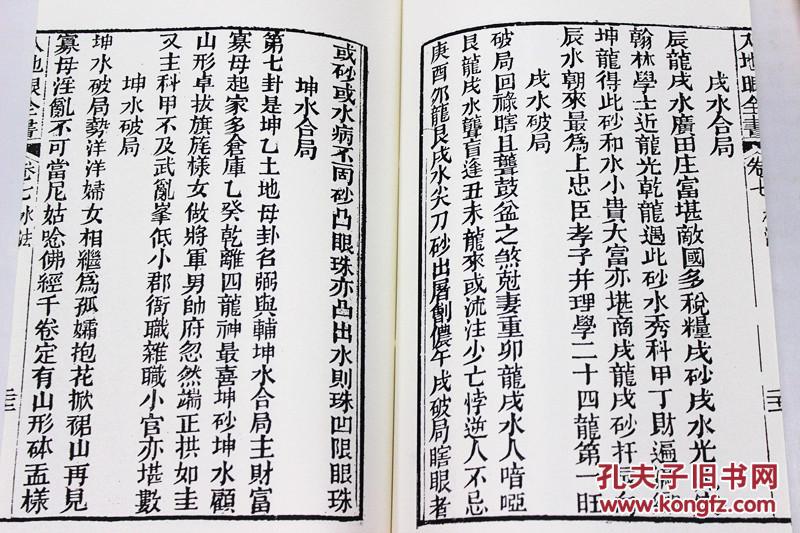 戌水合局
辰龍戌水廣田庄富堪敵國多稅糧戌砂戌水光
翰林學士近龍光乾龍遇此砂水秀科甲丁財遍
坤龍得此砂和水小貴大富亦堪商戌龍戌砂扦
辰水朝來最爲上忠臣孝子并理學二十四龍第一旺
戌水破局
破局回祿瞎且聾鼓盆之煞尅妻重卯龍戌水人喑啞
艮龍戌水聾盲逢丑未龍來或流注少亡悖逆人不忌
庚酉卯龍艮戌水尖刀砂出屠劊儂午戌破局瞎眼者
或砂或水病不同砂凸眼珠亦凸出水則珠凹限眼珠
坤水合局
第七卦是坤乙土地母卦名弼與輔坤水合局主財富
寡母起家多倉庫乙癸乾離四龍神最喜坤砂坤水顧
山形卓拔旗旄樣女做將軍男帥府忽然端正拱如圭
又主科甲不及武亂峯低小郡衙職雜職小官亦堪數
坤水破局
坤水破局勢洋洋婦女相繼爲孤孀抱花掀裙山再見
寡母淫亂不可當尼姑唸佛經千卷定有山形砵盂樣
人地眼全書
卷七
水法
孔夫子旧书网
www.kongfz.com